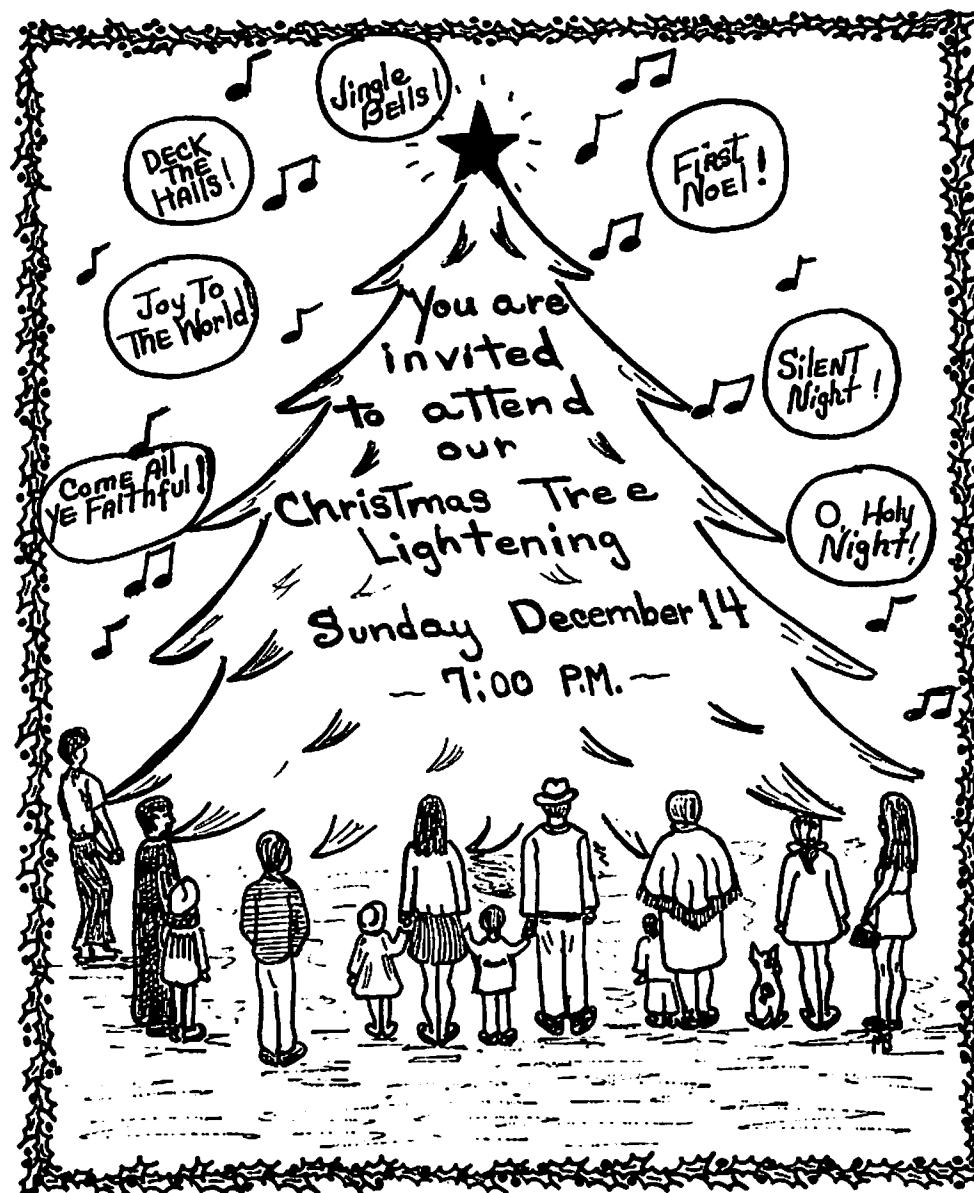 Jingle
Bells!
DECK
THE
HAlls!
FIRST
NOEl!
Joy To
THE World!
SilENT
Night!
COME All
YE FAITHful!
O, Holy
Night!
You are
invited
to attend
our
Christmas Tree
Lightening
Sunday December 14
— 7:00 P.M. —